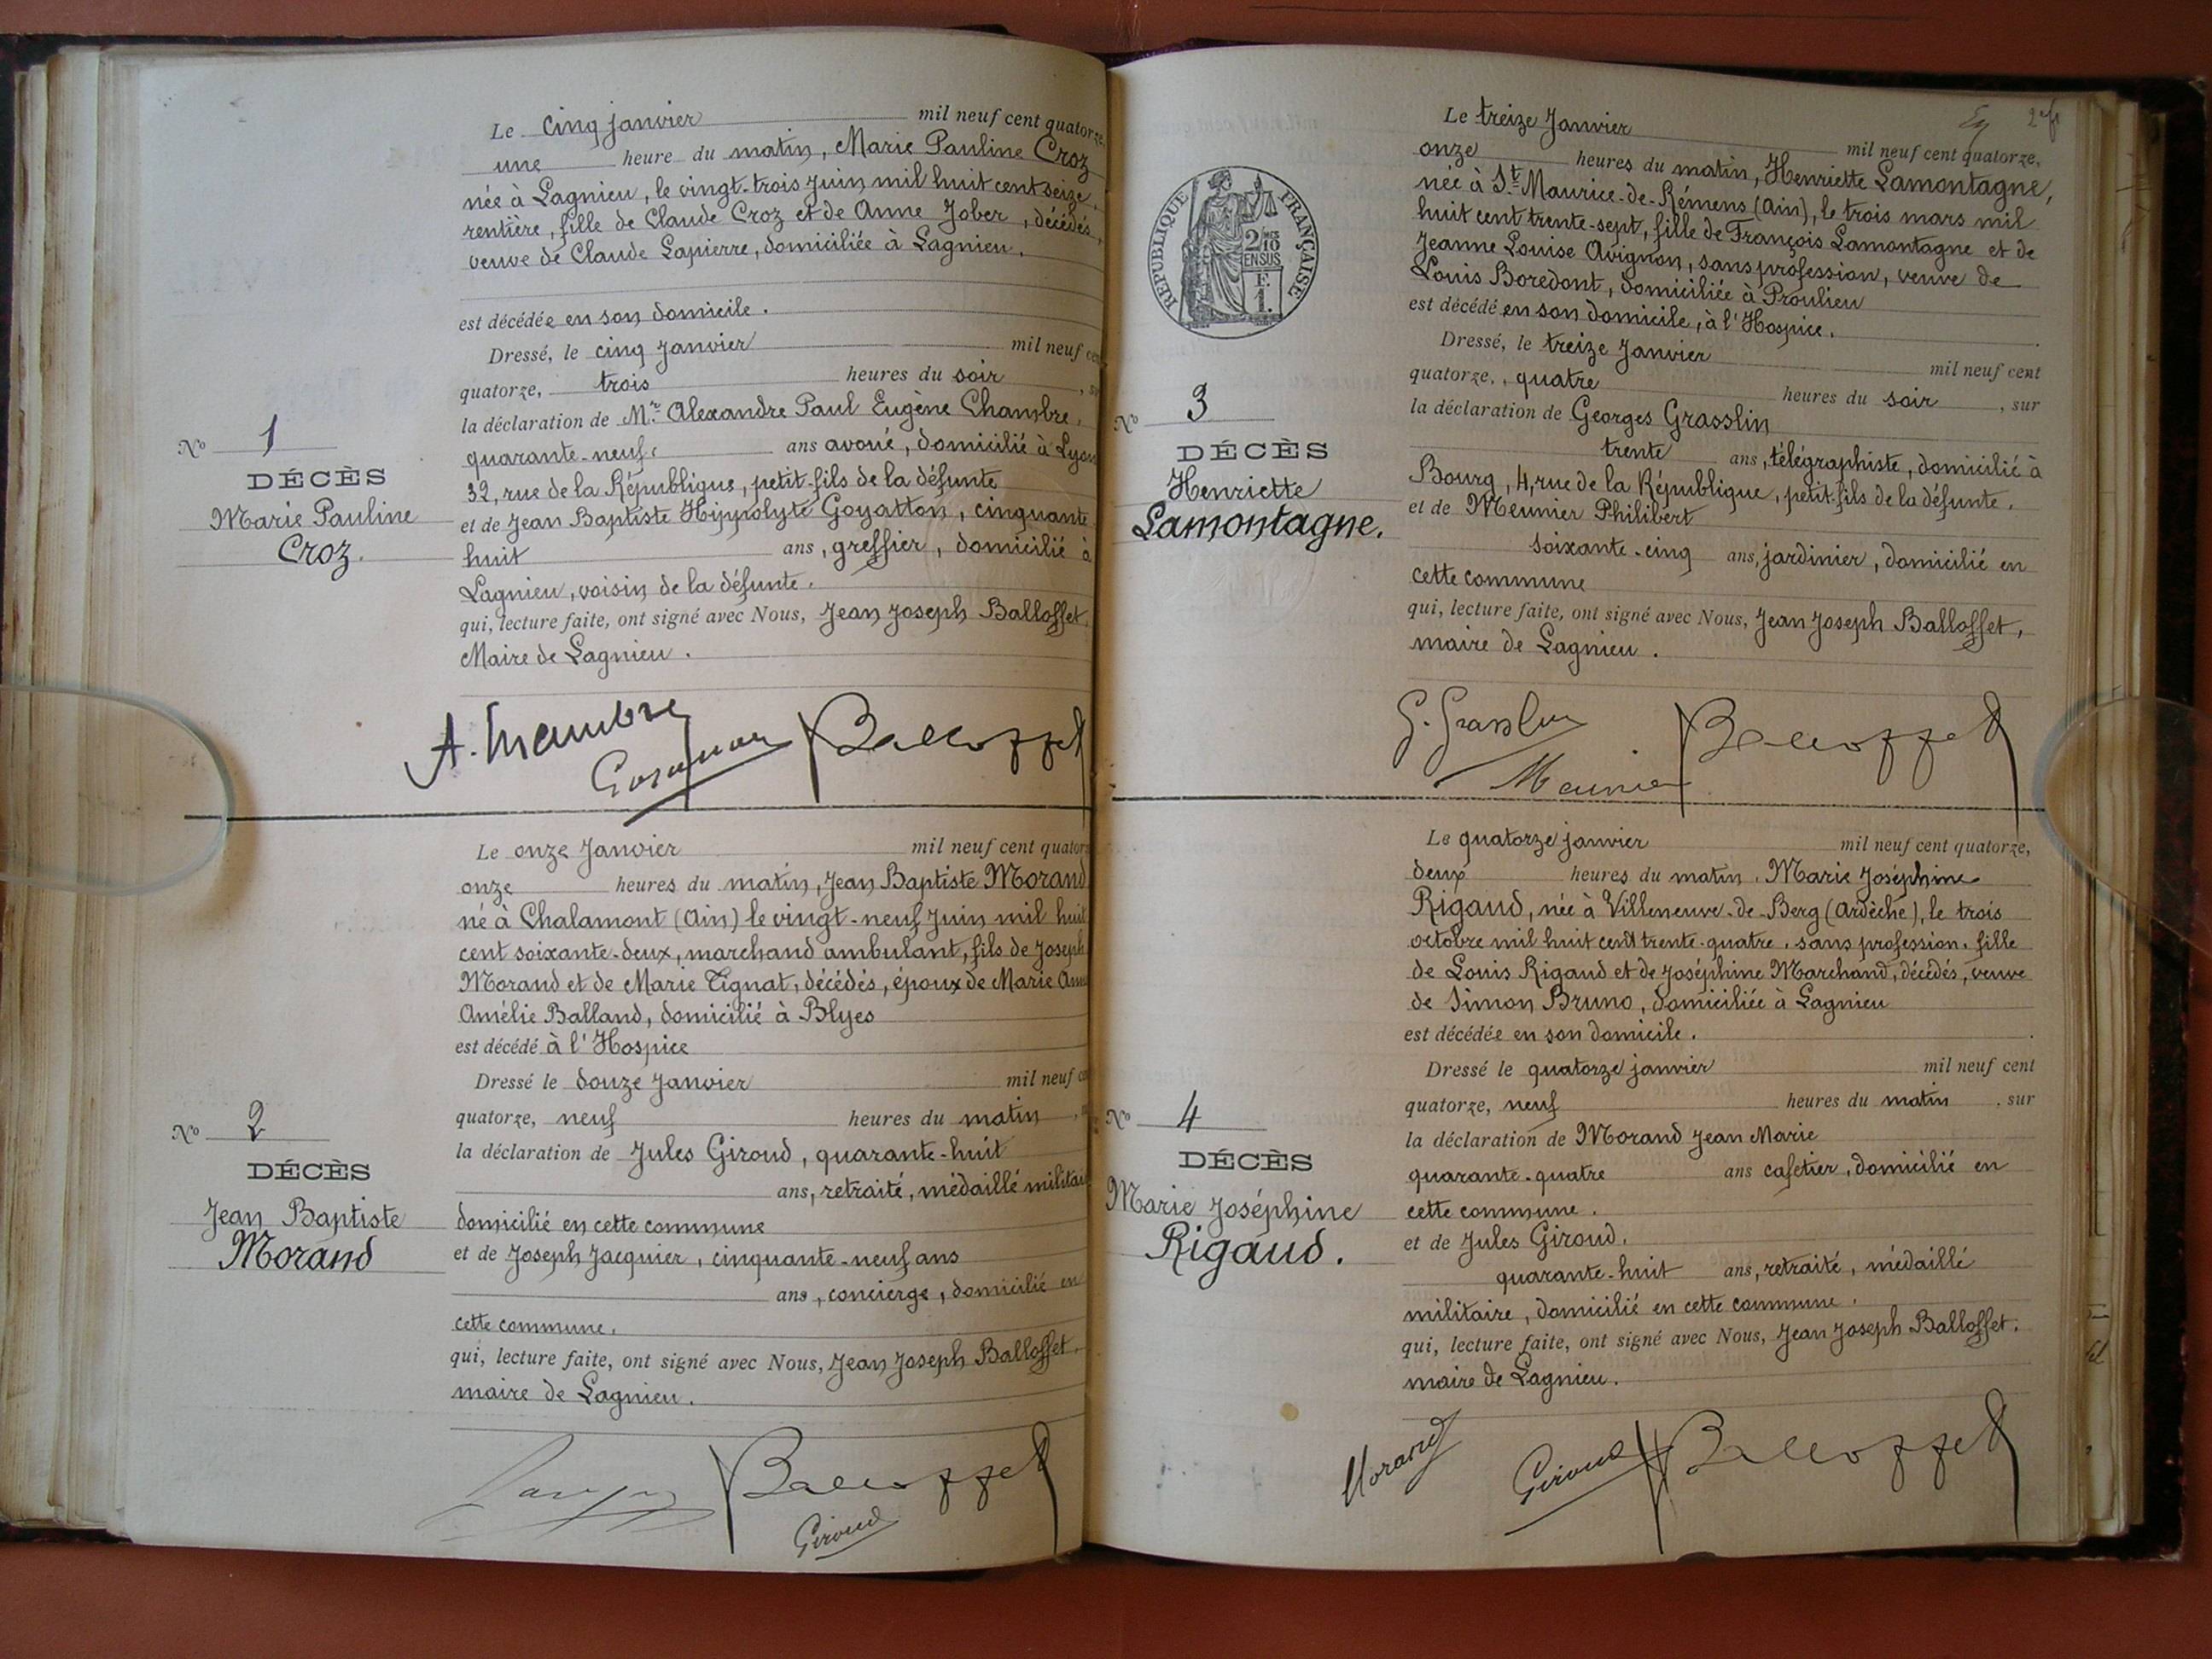 Le cinq janvier mil neuf cent quatorze,
une heure du matin, Marie Pauline Croz
née à Lagnieu, le vingt-trois juin mil huit cent seize,
rentière, fille de Claude Croz et de Anne Jober, décédés,
veuve de Claude Lapierre, domiciliée à Lagnieu.
est décédée en son domicile.
Dressé, le cinq janvier mil neuf
quatorze, trois heures du soir
la déclaration de Mr. Alexandre Paul Eugène Chambre,
No 1
quarante-neuf ans avoué, domicilié à Lyon
DÉCÈS
32, rue de la République, petit-fils de la défunte
Marie Pauline
et de Jean Baptiste Hippolyte Goyatton, cinquante
Croz.
huit ans, greffier, domicilié à
Lagnieu, voisin de la défunte.
qui, lecture faite, ont signé avec Nous, Jean Joseph Balloffet,
Maire de Lagnieu.
Balloffet
Le onze Janvier mil neuf cent quatorze
onze heures du matin, Jean Baptiste Morand
né à Chalamont (Ain) le vingt-neuf Juin mil huit
cent soixante-deux, marchand ambulant, fils de Joseph
Morand et de Marie Tignat, décédés, époux de Marie
Amélie Balland, domicilié à Blyes
est décédé à l'Hospice
Dressé le douze Janvier mil neuf
No 2
quatorze, neuf heures du matin
la déclaration de Jules Giroud, quarante-huit
DÉCÈS
ans, retraité, médaillé militaire
Jean Baptiste
domicilié en cette commune
Morand
et de Joseph Jacquier, cinquante-neuf ans
ans, concierge, domicilié en
cette commune.
qui, lecture faite, ont signé avec Nous, Jean Joseph Balloffet,
maire de Lagnieu.
Balloffet
Giroud
Le treize Janvier mil neuf cent quatorze,
onze heures du matin, Henriette Lamontagne,
née à St. Maurice-de-Rémens (Ain), le trois mars mil
huit cent trente-sept, fille de François Lamontagne et de
Jeanne Louise Avignon, sans profession, veuve de
Louis Boredont, domiciliée à Proulieu
est décédé en son domicile, à l'Hospice.
RÉPUBLIQUE FRANÇAISE
2/10
EN SUS
F.
1.
Dressé, le treize Janvier mil neuf cent
quatorze, quatre heures du soir, sur
No 3
la déclaration de Georges Grasslin
DÉCÈS
trente ans, télégraphiste, domicilié à
Henriette
Bourg, 4, rue de la République, petit-fils de la défunte.
Lamontagne.
et de Meunier Philibert
soixante-cinq ans, jardinier, domicilié en
cette commune
qui, lecture faite, ont signé avec Nous, Jean Joseph Balloffet,
maire de Lagnieu.
G. Grasslin
Balloffet
Meunier
Le quatorze janvier mil neuf cent quatorze,
deux heures du matin, Marie Joséphine
Rigaud, née à Villeneuve-de-Berg (Ardèche), le trois
octobre mil huit cent trente-quatre, sans profession, fille
de Louis Rigaud et de Joséphine Marchand, décédés, veuve
de Simon Bruno, domiciliée à Lagnieu
est décédée en son domicile.
Dressé le quatorze janvier mil neuf cent
No 4
quatorze, neuf heures du matin, sur
la déclaration de Morand Jean Marie
DÉCÈS
quarante-quatre ans cafetier, domicilié en
Marie Joséphine
cette commune.
Rigaud.
et de Jules Giroud,
quarante-huit ans, retraité, médaillé
militaire, domicilié en cette commune.
qui, lecture faite, ont signé avec Nous, Jean Joseph Balloffet,
maire de Lagnieu.
Morand
Giroud
Balloffet